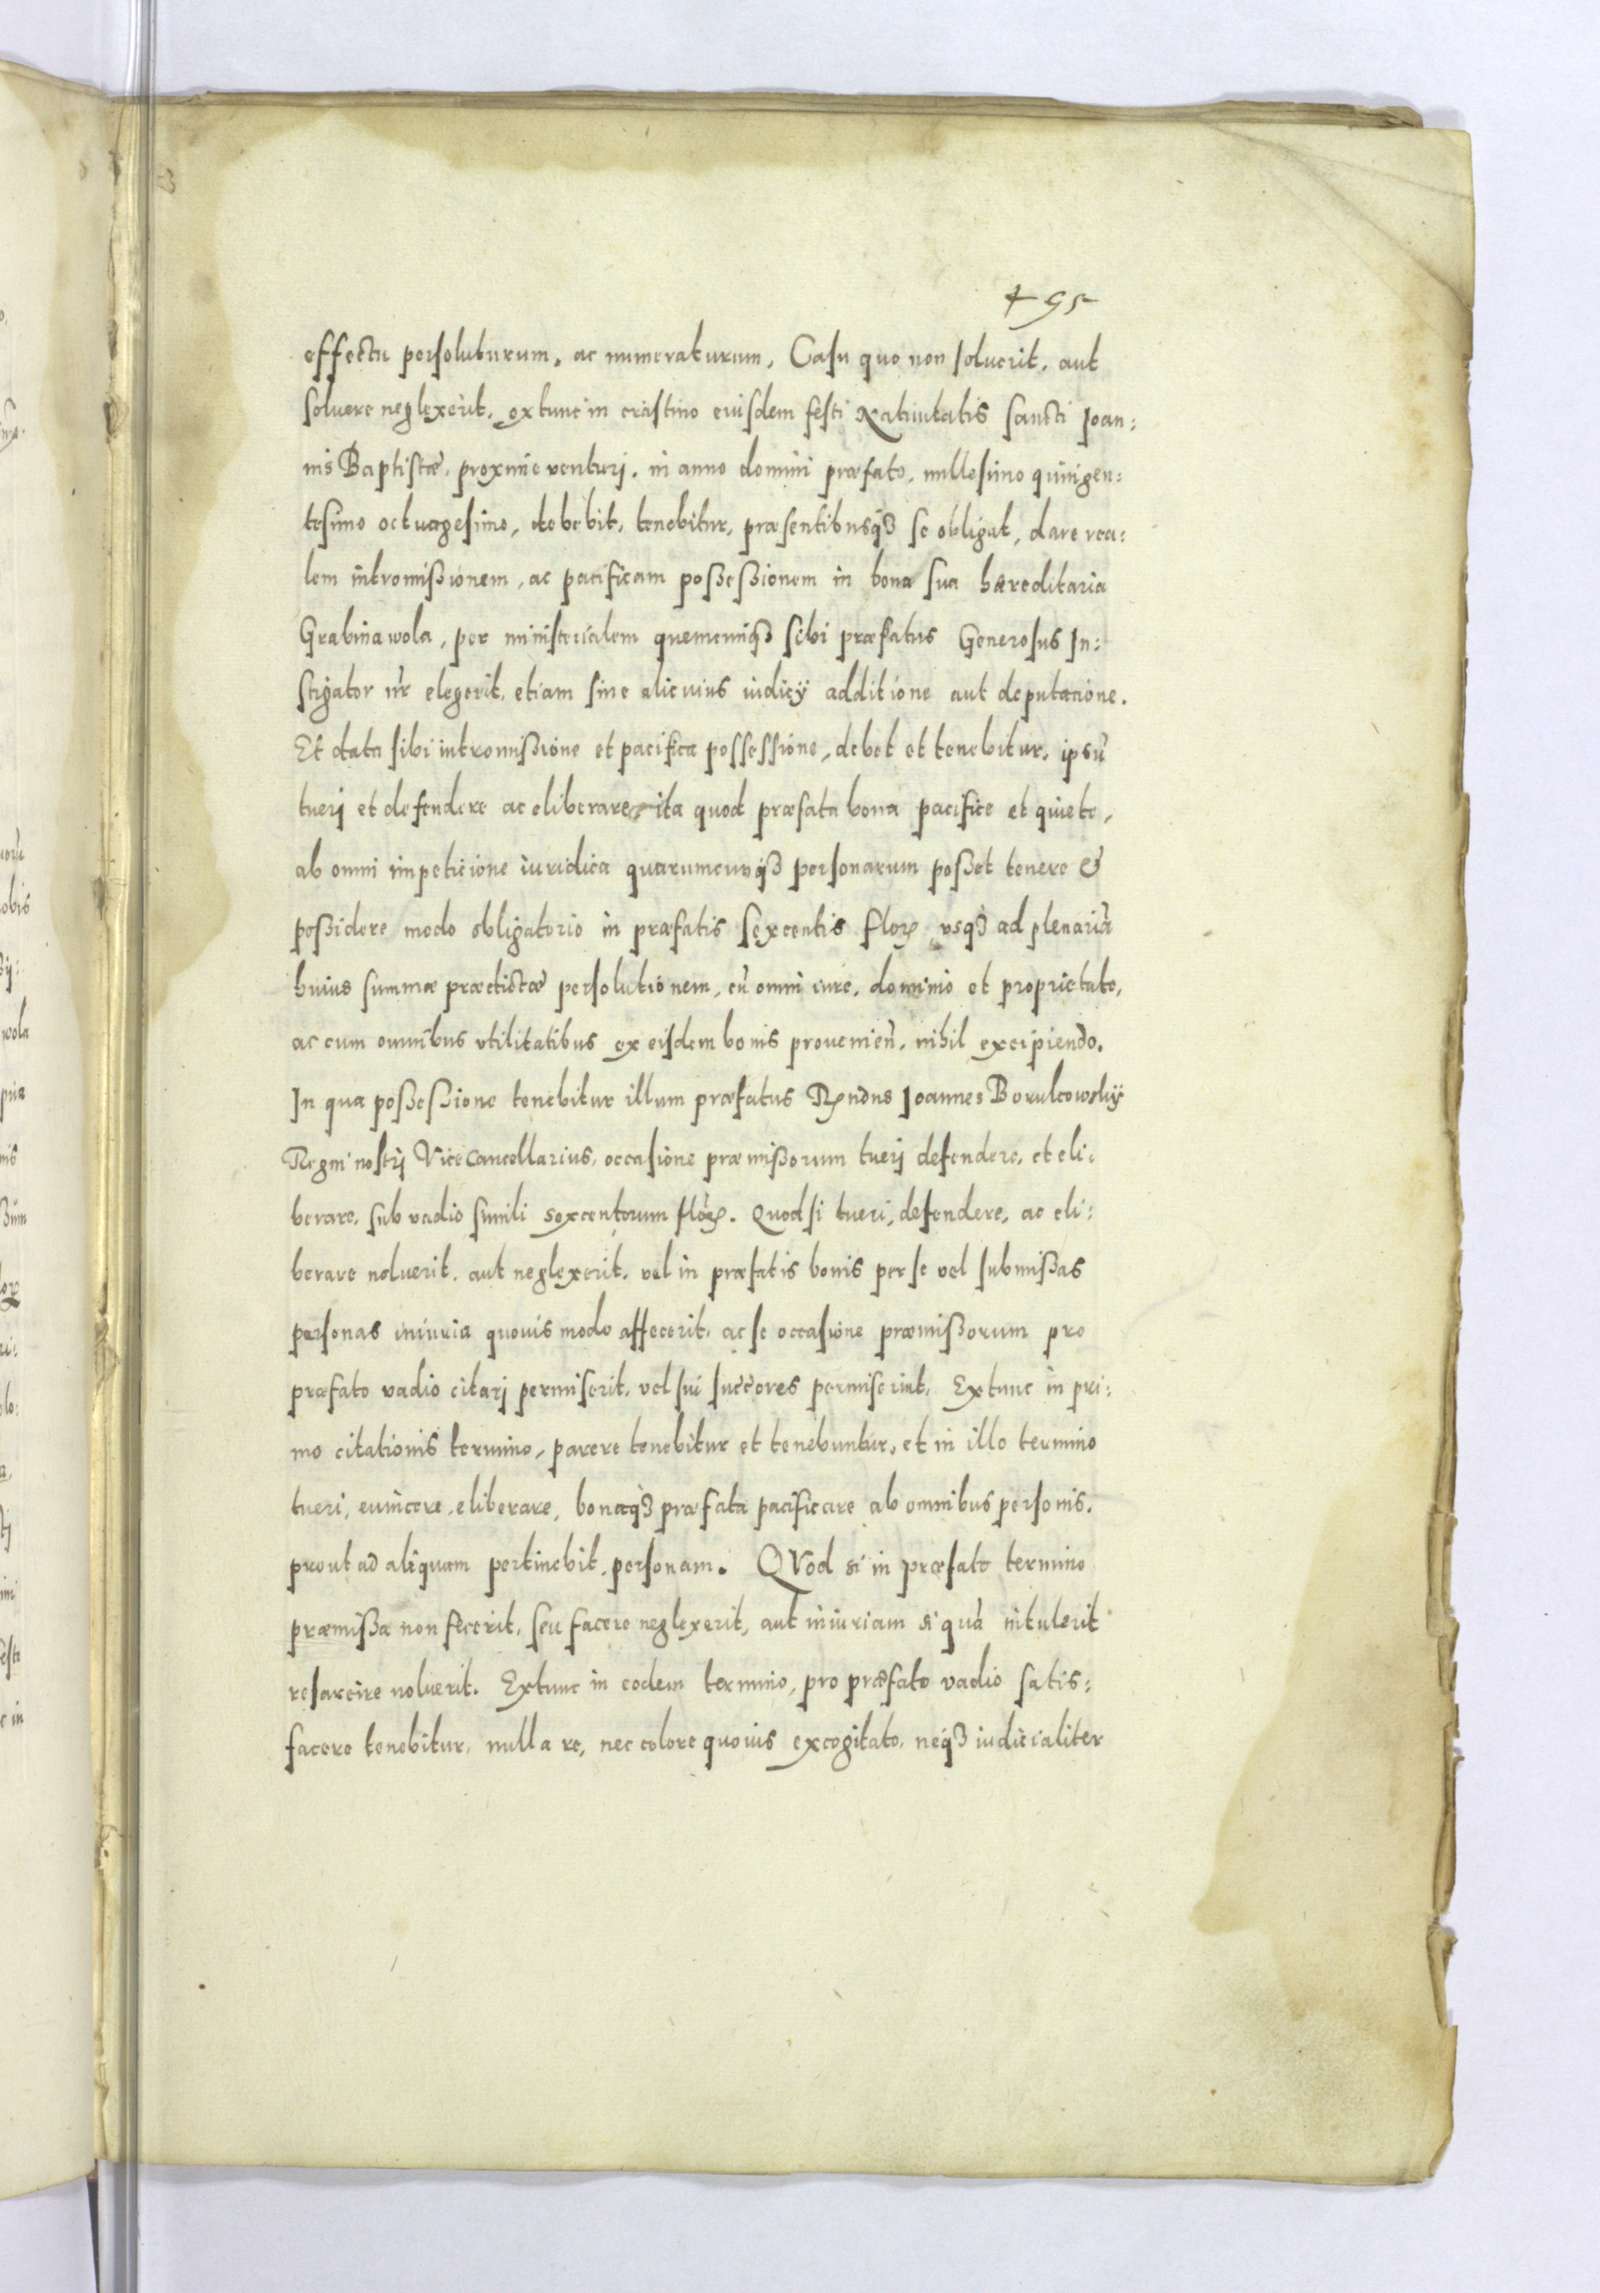 495
effectu persoluturum, ac numeraturum, Casu quo non soluerit, aut
soluere neglexerit, extunc in crastino eiusdem festi Natiuitatis sancti Joan:
nis Baptistæ, proxime venturj, in anno domini præfato, millesimo quingen:
tesimo octuagesimo, debebit, tenebitur, præsentibusqʒ se obligat, dare rea:
lem intromißionem, ac pacificam poßeßionem in bona sua hæreditaria
Grabinawola, per ministerialem quemcunqʒ sibi præfatus Generosus In:
stigator nr̃ elegerit, etiam sine alicuius iudicÿ additione aut deputacione.
Et data sibi intromißione et pacifica possessione, debet et tenebitur, ipsũ
tuerj et defendere ac eliberare ita quod præfata bona pacifice et quiete,
ab omni impeticione iuridica quarumcunqʒ personarum poßet tenere &
poßidere modo obligatorio in præfatis sexcentis floꝝ vsqʒ ad plenariã
huius summæ prædictæ persolutionem, cũ omni iure, dominio et proprietate,
ac cum omnibus vtilitatibus ex eisdem bonis prouenien̄, nihil excipiendo.
In qua poßeßione tenebitur illum præfatus Rṇdus Joannes Borukowskÿ
Regni nostrj ViceCancellarius, occasione præmißorum tuerj defendere, et eli:
berare, sub vadio simili sexcentorum floꝝ. Quod si tueri, defendere, ac eli:
berare noluerit, aut neglexerit, vel in præfatis bonis per se vel submißas
personas iniuria quouis modo affecerit, ac se occasione præmißorum pro
præfato vadio citarj permiserit, vel sui succ̃ores permiserint, Extunc in pri:
mo citationis termino, parere tenebitur et tenebuntur, et in illo termino
tueri, euincere, eliberare, bonaqʒ præfata pacificare ab omnibus personis,
prout ad aliquam pertinebit, personam. QVod si in præfato termino
præmißa non fecerit, seu facere neglexerit, aut iniuriam si quã intulerit
resarcire noluerit. Extunc in eodem termino, pro præfato vadio satis:
facere tenebitur, nulla re, nec colore quouis excogitato, neqʒ iudicialiter